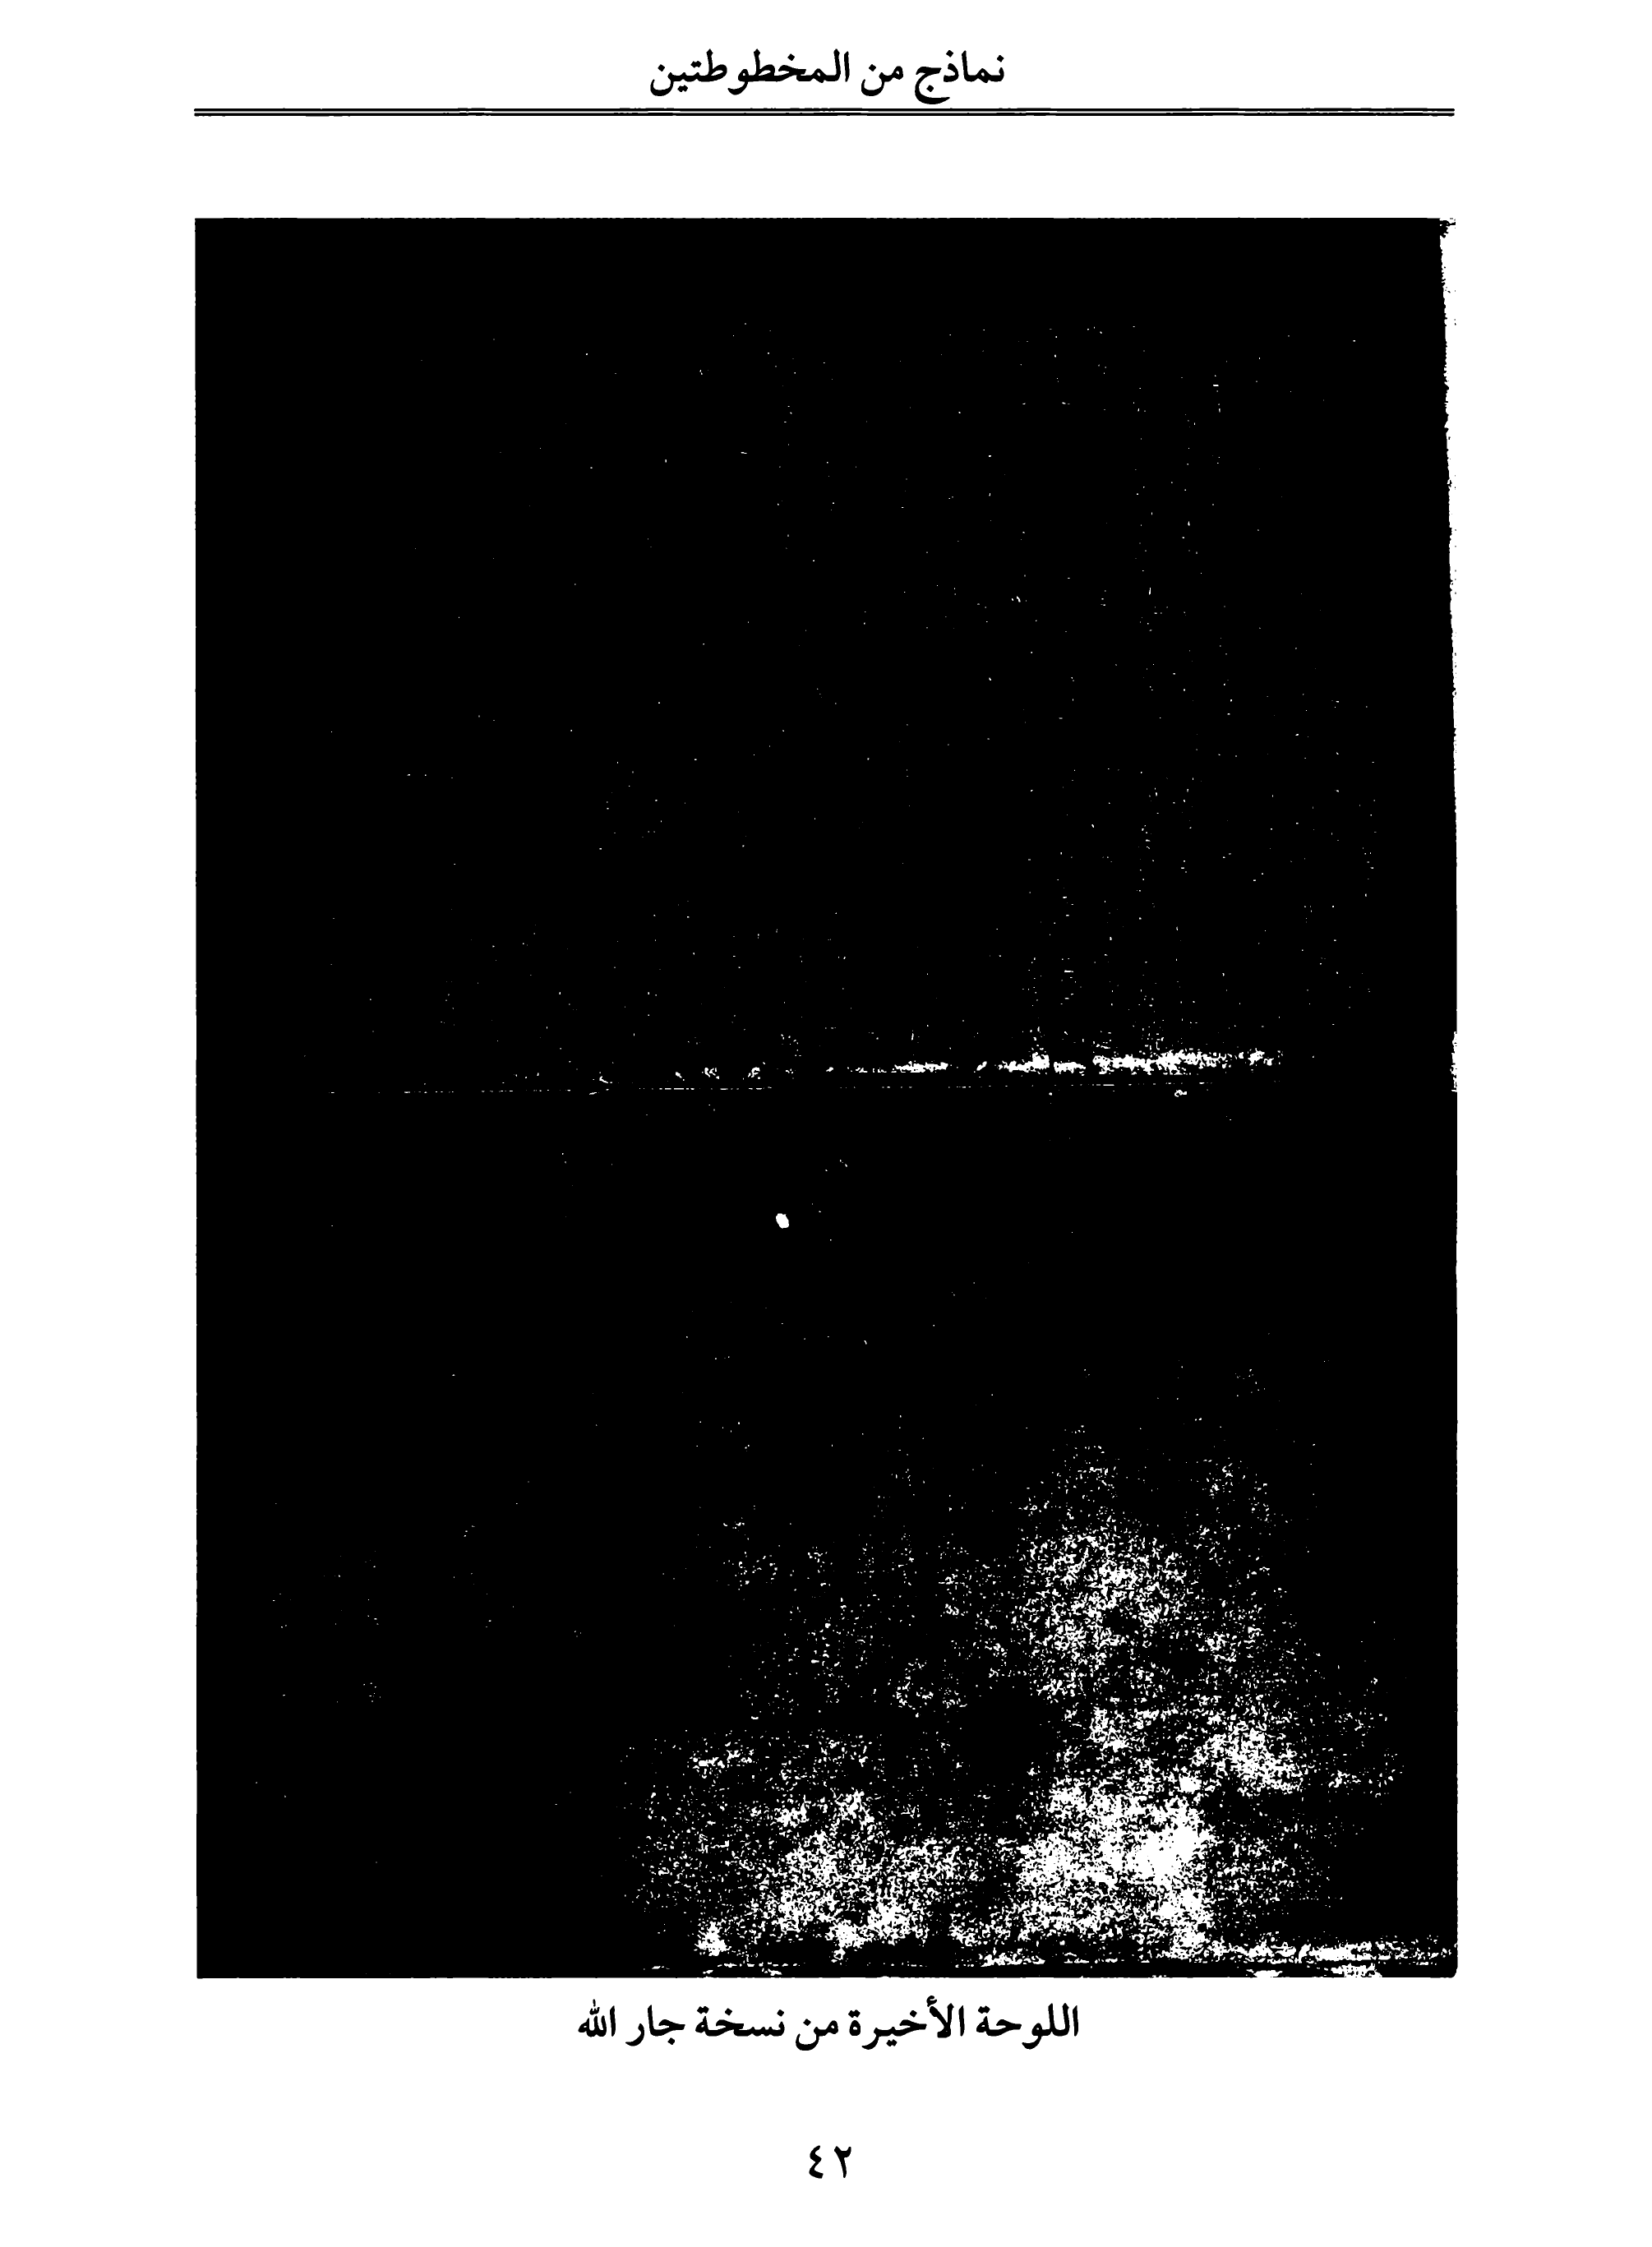 نماذج من المخطوطتين
اللوحة الأخيرة من نسخة جار الله
٤٢